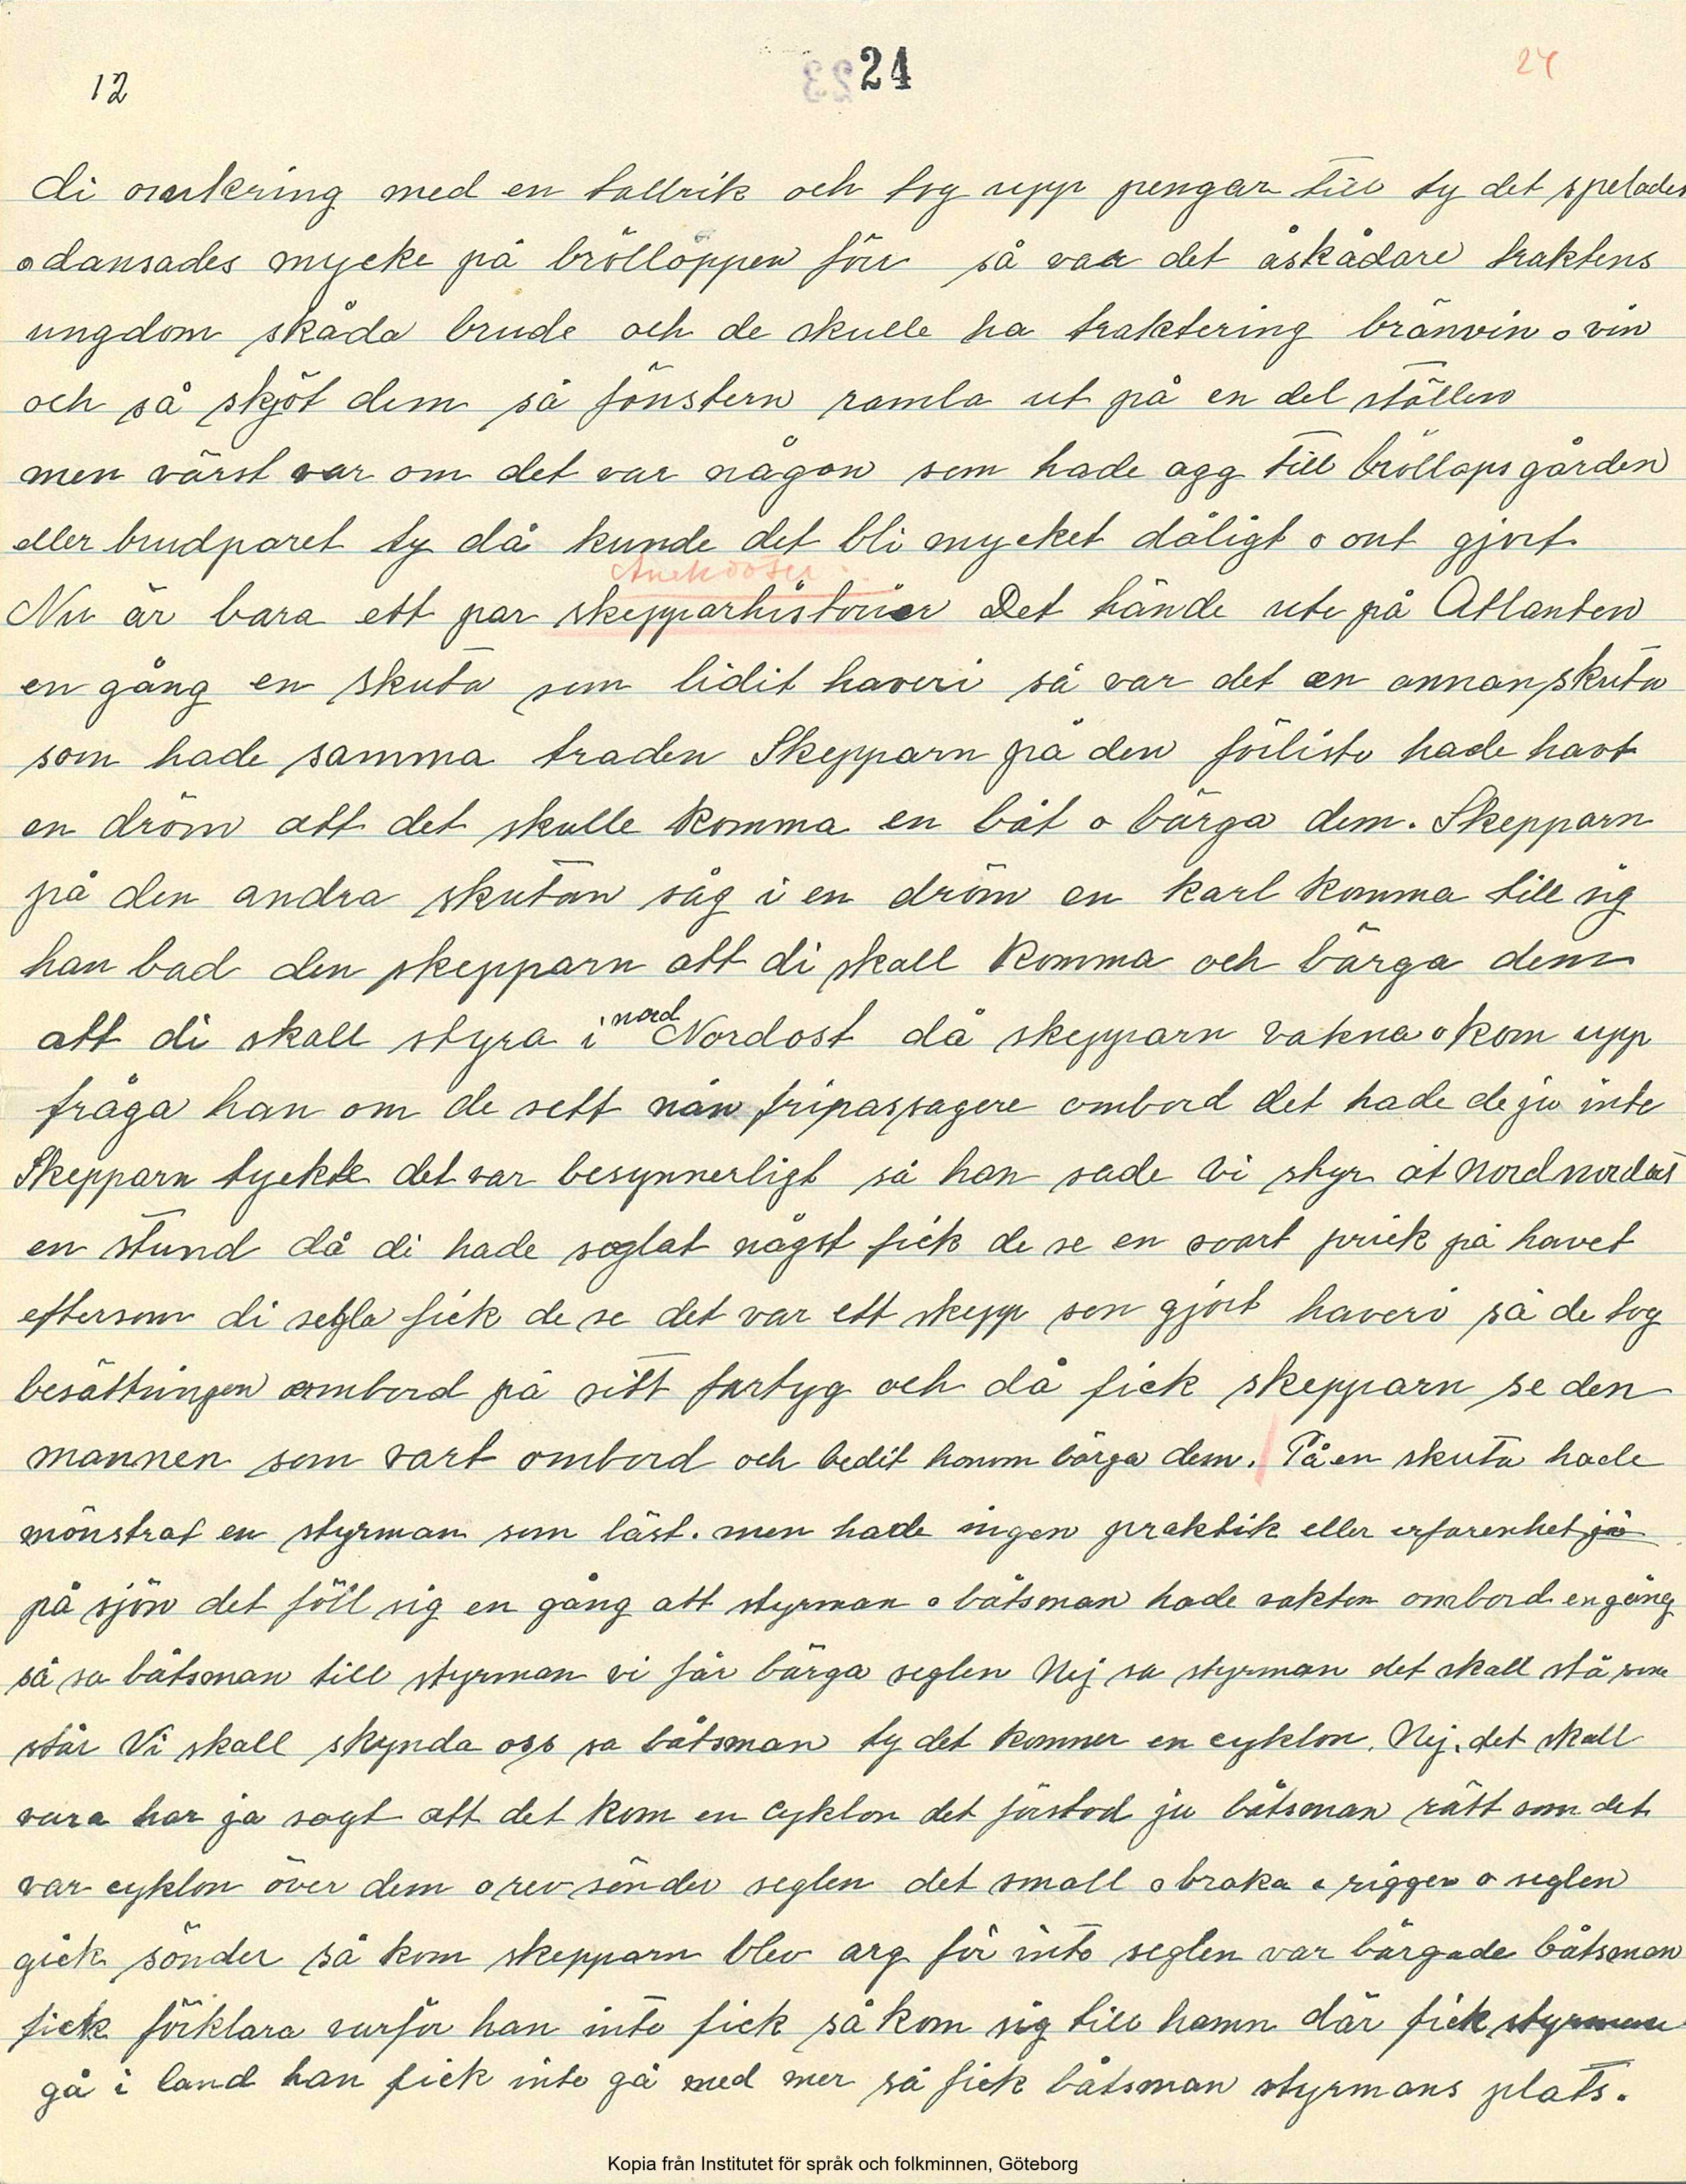 12
24
24
di omkring med en tallrik och tog upp pengar till ty det spelades
o dansades mycke på brölloppen förr så var det åskådare traktens
ungdom skåda brude och de skulle ha traktering bränvin o vin
och så skjöt dem så fönstern ramla ut på en del ställen
men värst var om det var någon som hade agg till bröllopsgården
eller brudparet ty då kunde det bli mycket dåligt o ont gjort.
Anekdoter.
Nu är bara ett par skepparhistorier Det hände ute på Atlanten
en gång en skuta som lidit haveri så var det en annan skuta
som hade samma traden Skepparn på den förlista hade havt
en dröm att det skulle komma en båt o bärga dem. Skepparn
på den andra skutan såg i en dröm en karl komma till sig
han bad den skepparn att di skall komma och bärga dem
att di skall styra i nord Nordost då skepparn vakna o kom upp
fråga han om de sett nån fripassagere ombord det hade de ju inte
Skepparn tyckte det var besynnerligt så han sade vi styr åt nordnordost
en stund då di hade seglat någst fick de se en svart prick på havet
eftersom di segla fick de se det var ett skepp som gjort haveri så de tog
besättningen ombord på sitt fartyg och då fick skepparn se den
mannen som vart ombord och bedit honom bärga dem. På en skuta hade
mönstrat en styrman som läst. men hade ingen praktik eller erfarenhet
på sjön det föll sig en gång att styrman o båtsman hade vakten ombord en gång
så sa båtsman till styrman vi får bärga seglen Nej sa styrman det skall stå som
står Vi skall skynda oss sa båtsman ty det kommer en cyklon. Nej. det skall
vara har ja sagt att det kom en cyklon det förstod ju båtsman rätt som det
var cyklon över dem o rev sönder seglen det small o braka o riggen o seglen
gick sönder så kom skepparn blev arg för inte seglen var bärgade båtsman
fick förklara varför han inte fick så kom sig till hamn där fick styrman
gå i land han fick inte gå med mer så fick båtsman styrmans plats.
Kopia från Institutet för språk och folkminnen, Göteborg